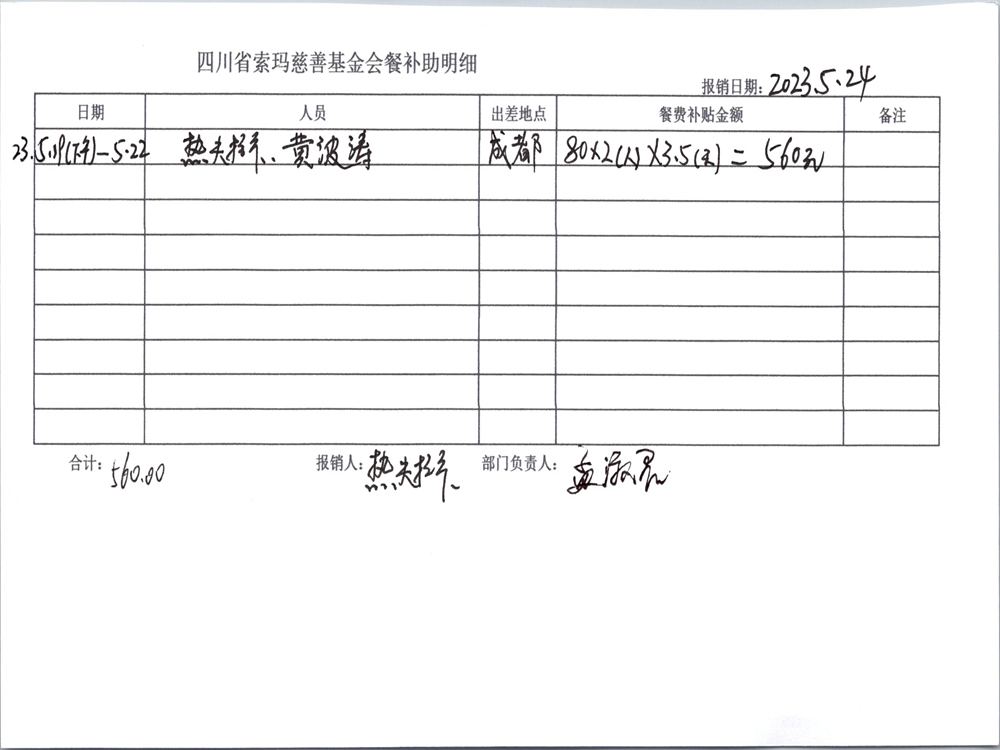 四川省索玛慈善基金会餐补助明细
报销日期: 2023.5.24
日期 人员 出差地点 餐费补贴金额 备注
23.5.19(下午)-5.22 热夫拉 黄波涛 成都 80×2(人)×3.5(天)=560元
合计: 560.00 报销人: 热夫拉 部门负责人: